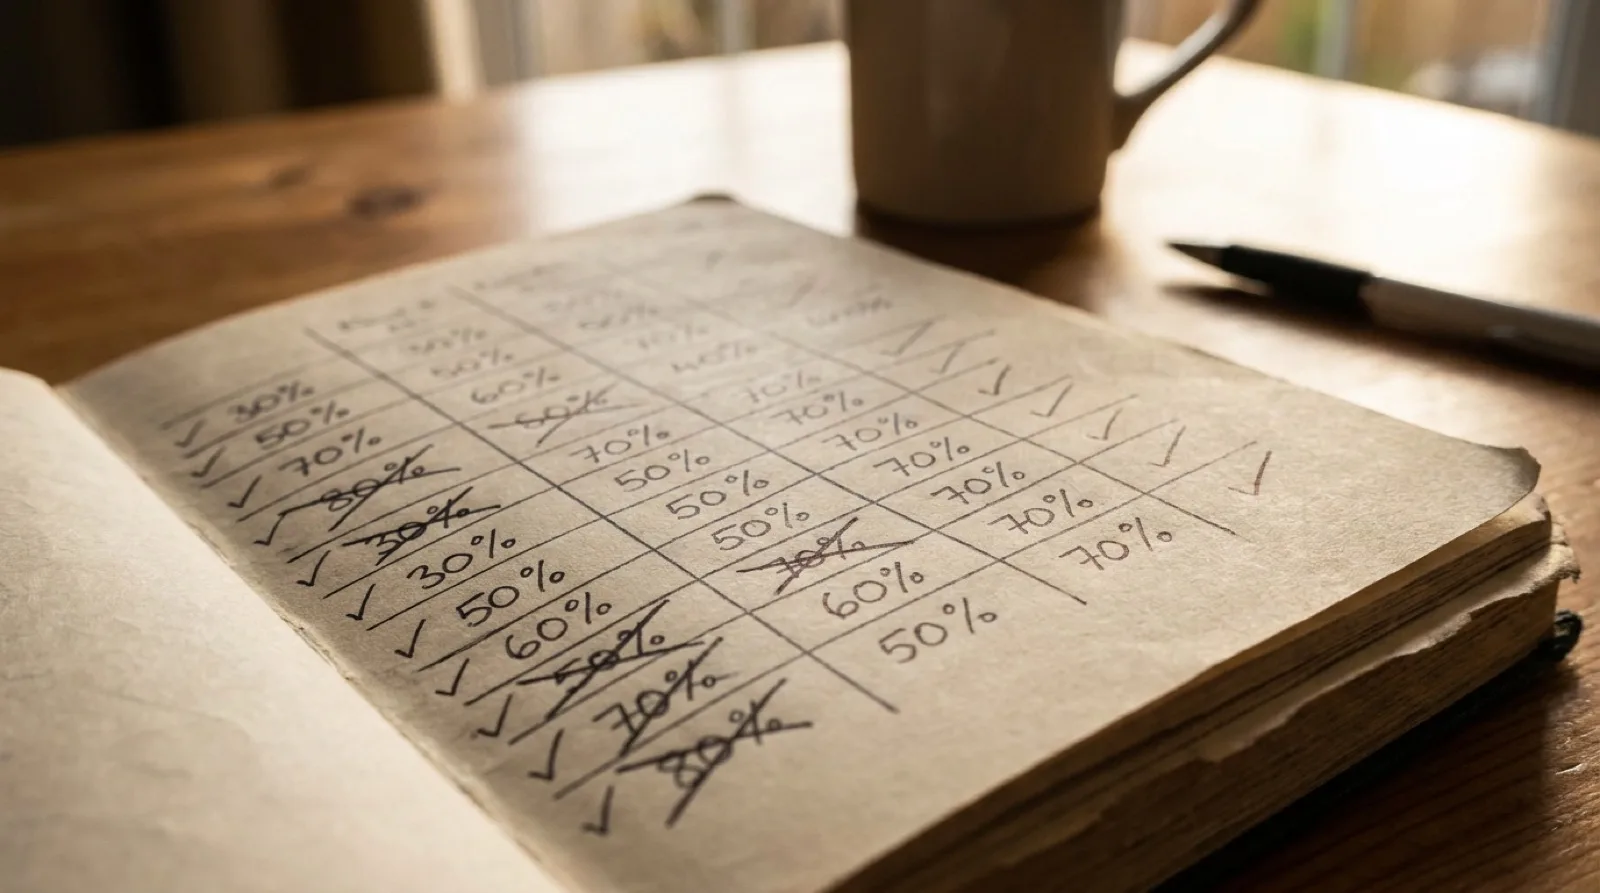 ✓ 30% 50%
✓ 50% 50% 50%
✓ 70% 60% 70%
✓ 80% 60% 40%
✓ 30% 70% 70% ✓
✓ 30% 50% 70% ✓
✓ 50% 50% 70% ✓
✓ 60% 50% 70% ✓
✓ 50% 70% 70% ✓
✓ 70% 60% 70% ✓
✓ 80% 50% 70% ✓